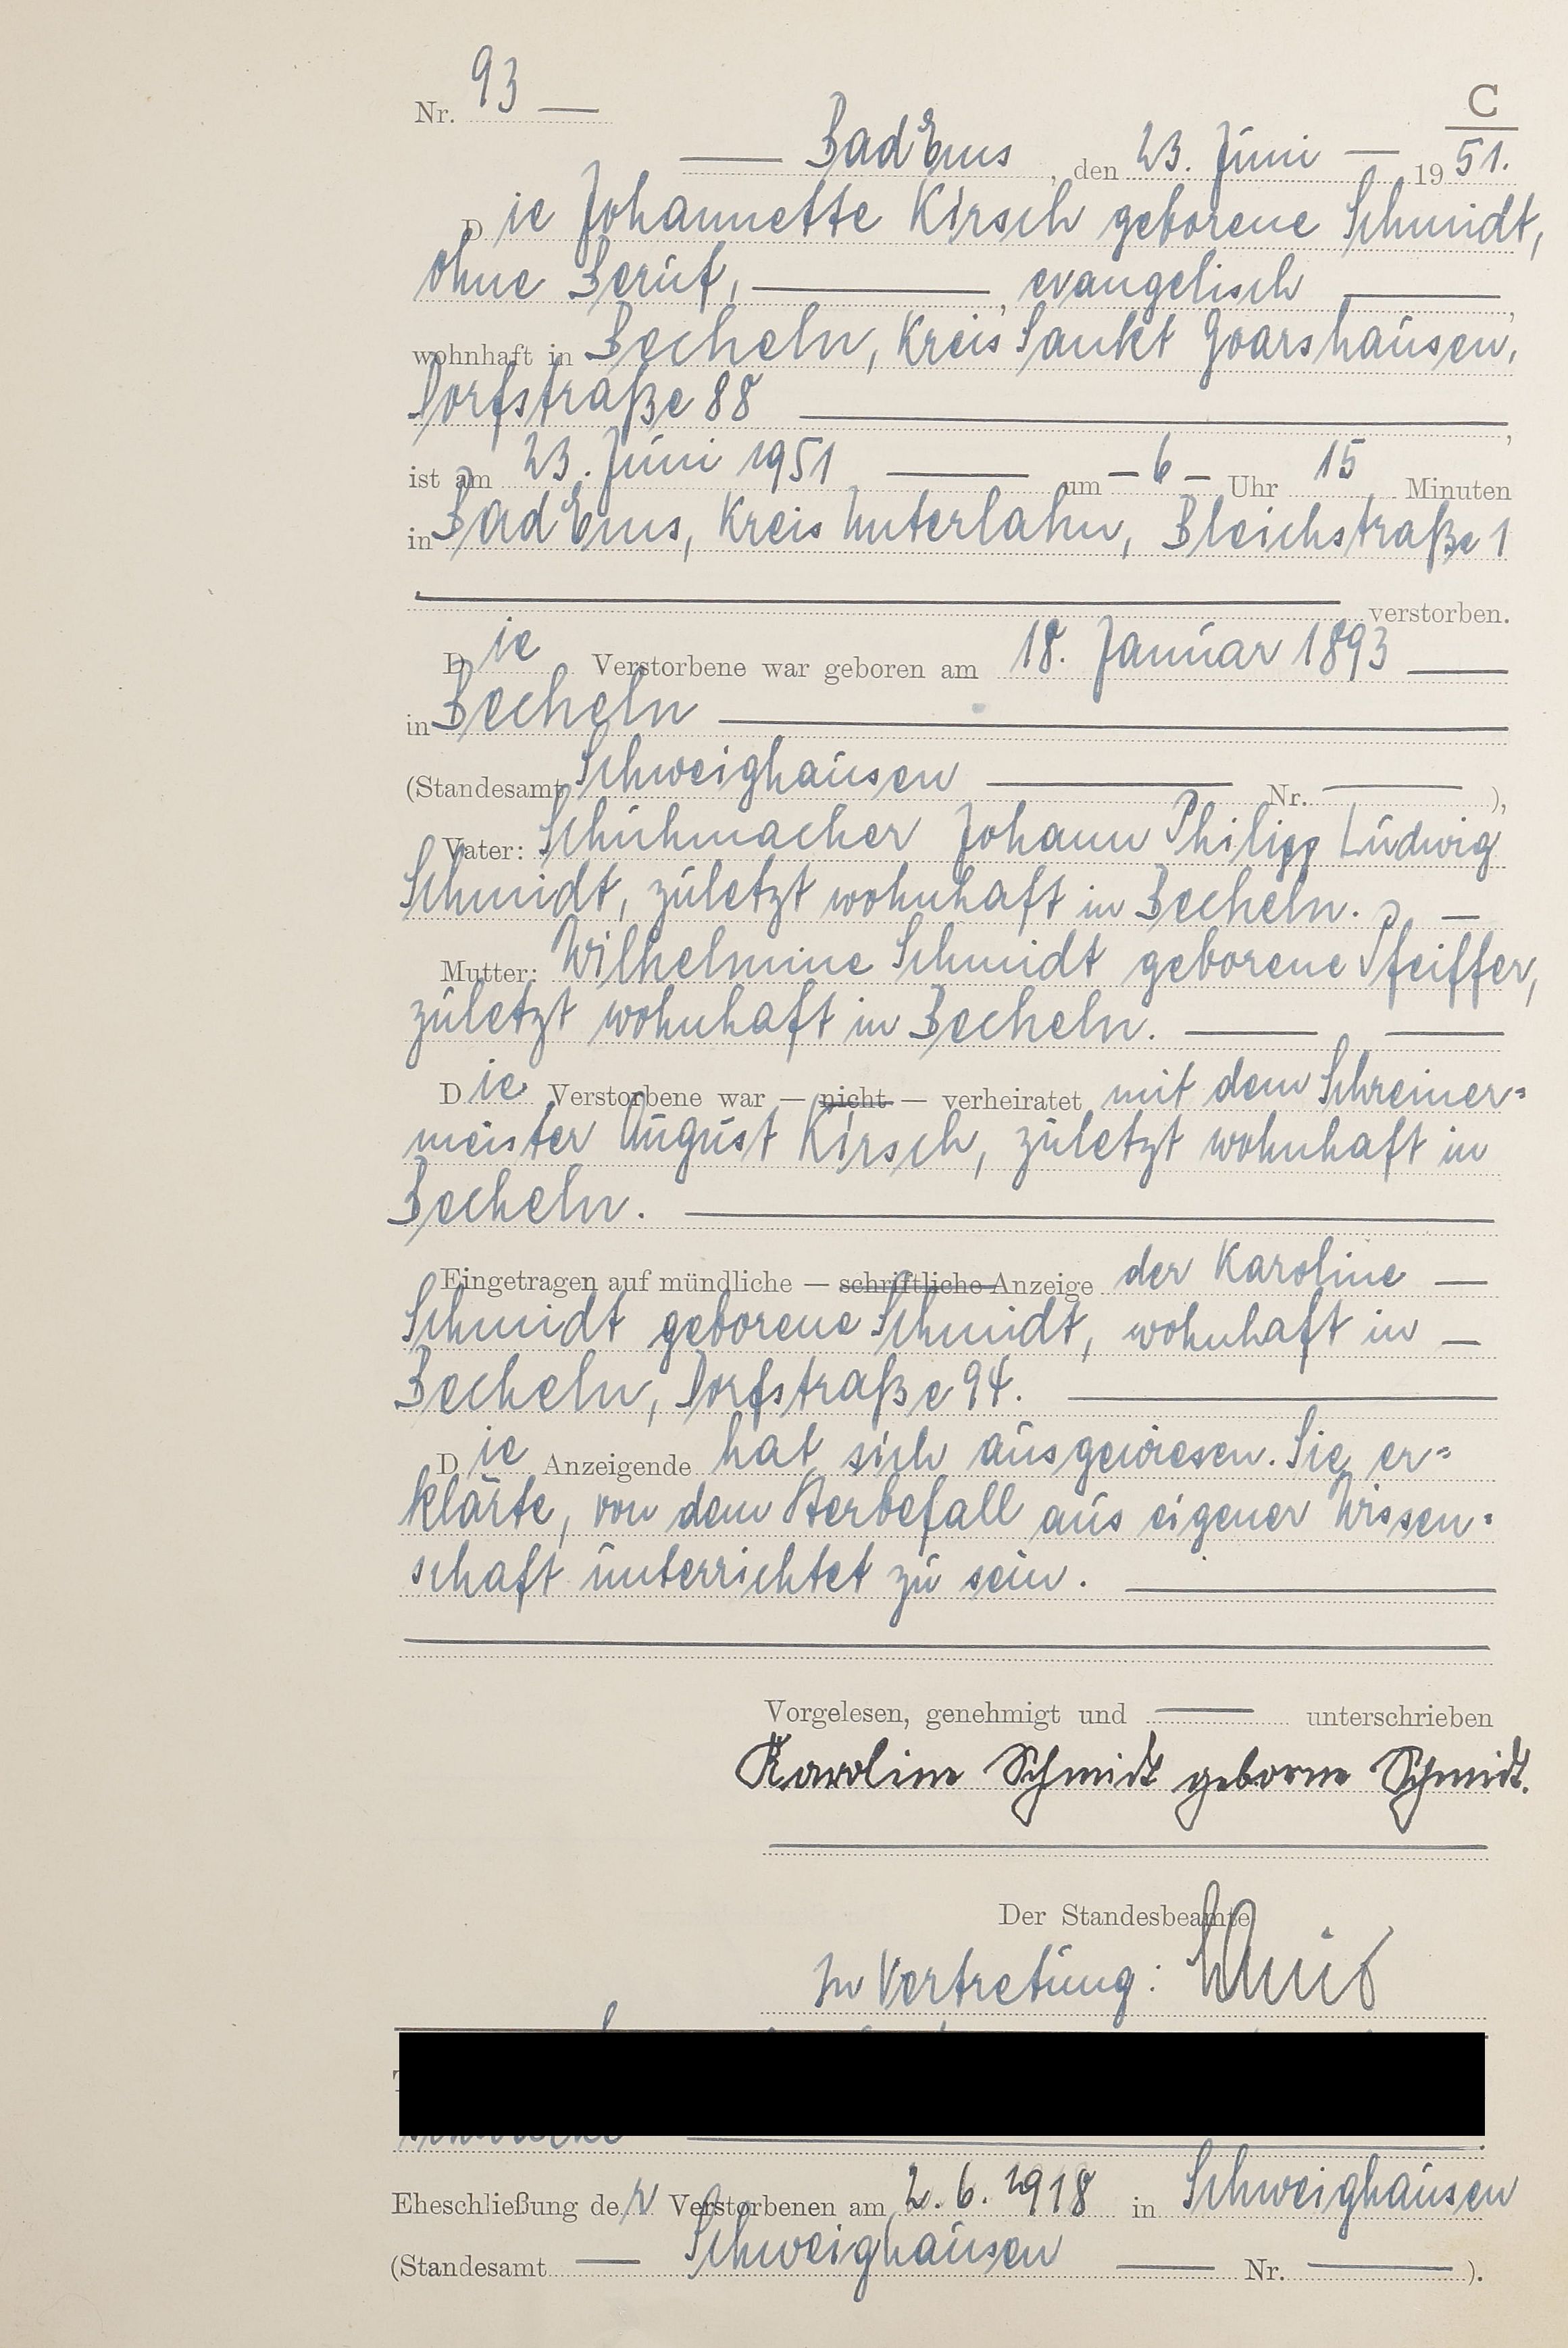 Nr. 93 —
C
— Bad Ems, den 23. Juni — 1951.
Die Johannette Kirsch geborene Schmidt,
ohne Beruf, —, evangelisch —,
wohnhaft in Becheln, Kreis Sankt Goarshausen,
Dorfstraße 88 —,
ist am 23. Juni 1951 — um – 6 – Uhr 15 Minuten
in Bad Ems, Kreis Unterlahn, Bleichstraße 1
— verstorben.
Die Verstorbene war geboren am 18. Januar 1893 —
in Becheln —
(Standesamt Schweighausen — Nr. — ),
Vater: Schuhmacher Johann Philipp Ludwig
Schmidt, zuletzt wohnhaft in Becheln. —
Mutter: Wilhelmine Schmidt geborene Pfeiffer,
zuletzt wohnhaft in Becheln. — —
Die Verstorbene war — nicht — verheiratet mit dem Schreiner=
meister August Kirsch, zuletzt wohnhaft in
Becheln. —
Eingetragen auf mündliche — schriftliche Anzeige der Karoline —
Schmidt geborene Schmidt, wohnhaft in —
Becheln, Dorfstraße 94. —
Die Anzeigende hat sich ausgewiesen. Sie er=
klärte, von dem Sterbefall aus eigener Wissen=
schaft unterrichtet zu sein. —
Vorgelesen, genehmigt und — unterschrieben
Karoline Schmidt geborne Schmidt.
Der Standesbeamte
In Vertretung:
Eheschließung der Verstorbenen am 2. 6. 1918 in Schweighausen
(Standesamt — Schweighausen — Nr. — ).